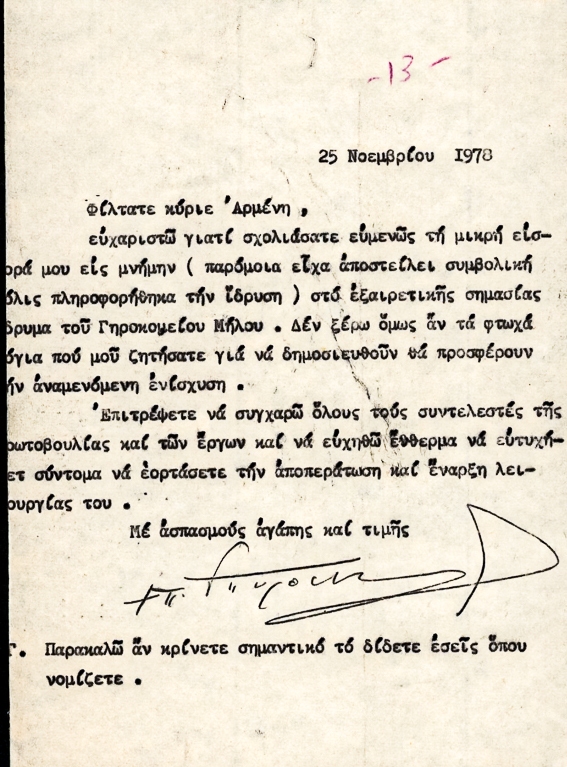 -13-
25 Νοεμβρίου 1978
Φίλτατε κύριε Ἀρμένη ,
εὐχαριστῶ γιατί σχολιάσατε εὐμενῶς τή μικρή εἰσ-
ορά μου εἰς μνήμην ( παρόμοια εἶχα ἀποστείλει συμβολική
όλις πληροφορήθηκα τήν ἵδρυση ) στό ἐξαιρετικῆς σημασίας
δρυμα τοῦ Γηροκομείου Μήλου . Δέν ξέρω ὅμως ἄν τά φτωχά
όγια πού μοῦ ζητήσατε γιά νά δημοσιευθοῦν θά προσφέρουν
ήν ἀναμενόμενη ἐνίσχυση .
Ἐπιτρέψετε νά συγχαρῶ ὅλους τούς συντελεστές τῆς
ρωτοβουλίας καί τῶν ἔργων καί νά εὐχηθῶ ἔνθερμα νά εὐτυχή-
ετ σύντομα νά ἑορτάσετε τήν ἀποπεράτωση καί ἔναρξη λει-
ουργίας του .
Μέ ἀσπασμούς ἀγάπης καί τιμῆς
Γ. Παρακαλῶ ἄν κρίνετε σημαντικό τό δίδετε ἐσεῖς ὅπου
νομίζετε .